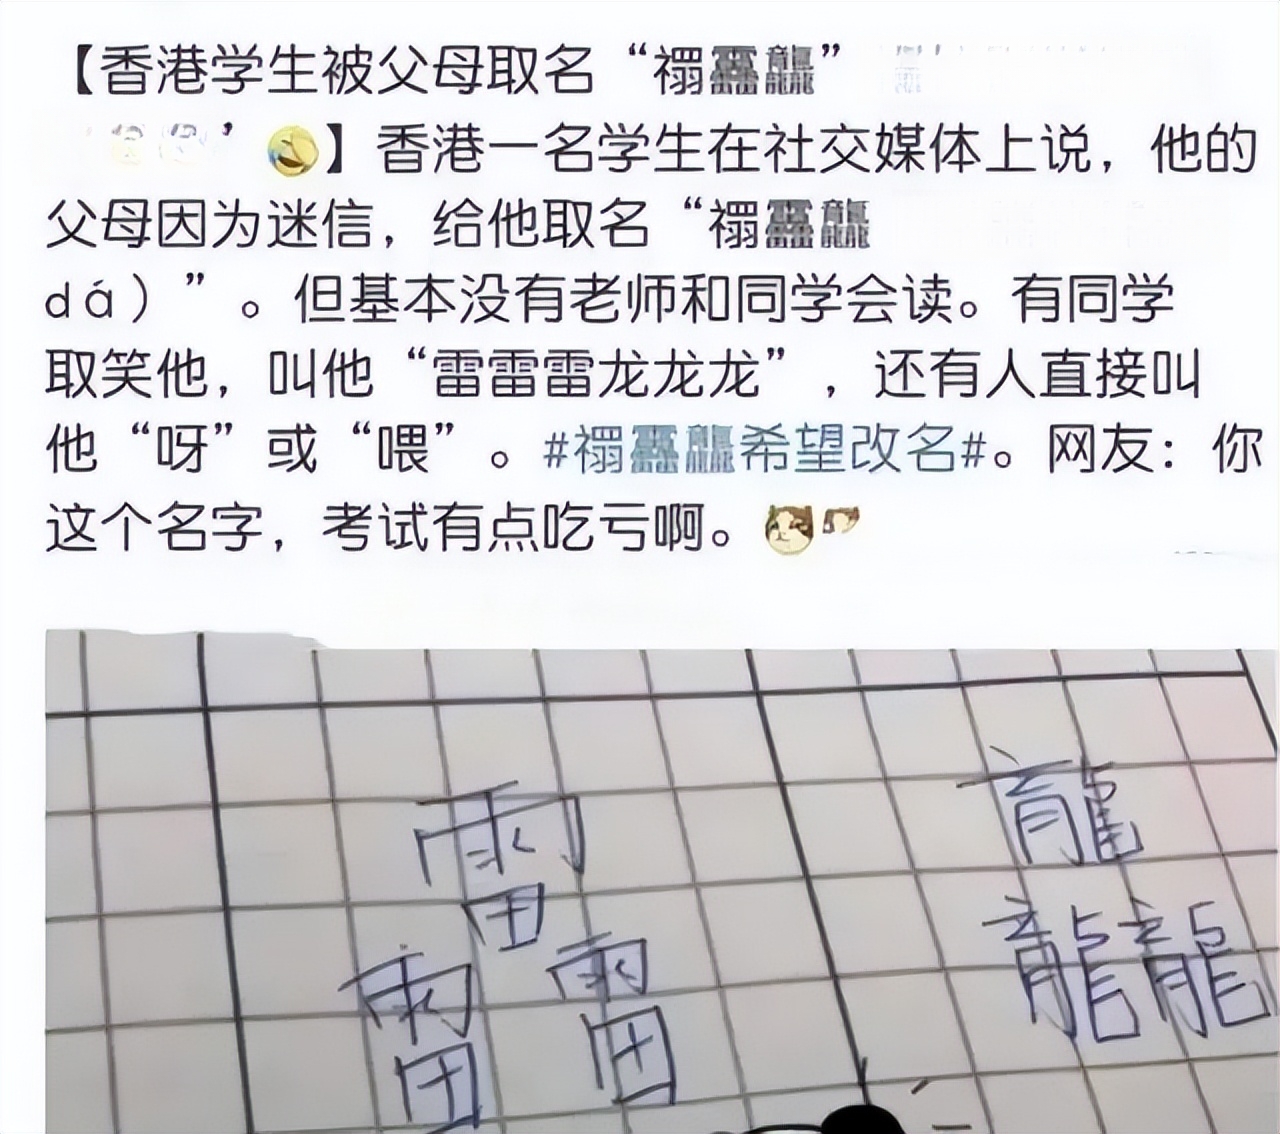 【香港学生被父母取名“禤靐龘”
’】香港一名学生在社交媒体上说，他的
父母因为迷信，给他取名“禤靐龘
dá）”。但基本没有老师和同学会读。有同学
取笑他，叫他“雷雷雷龙龙龙”，还有人直接叫
他“呀”或“喂”。#禤靐龘希望改名#。网友：你
这个名字，考试有点吃亏啊。
靐 龘